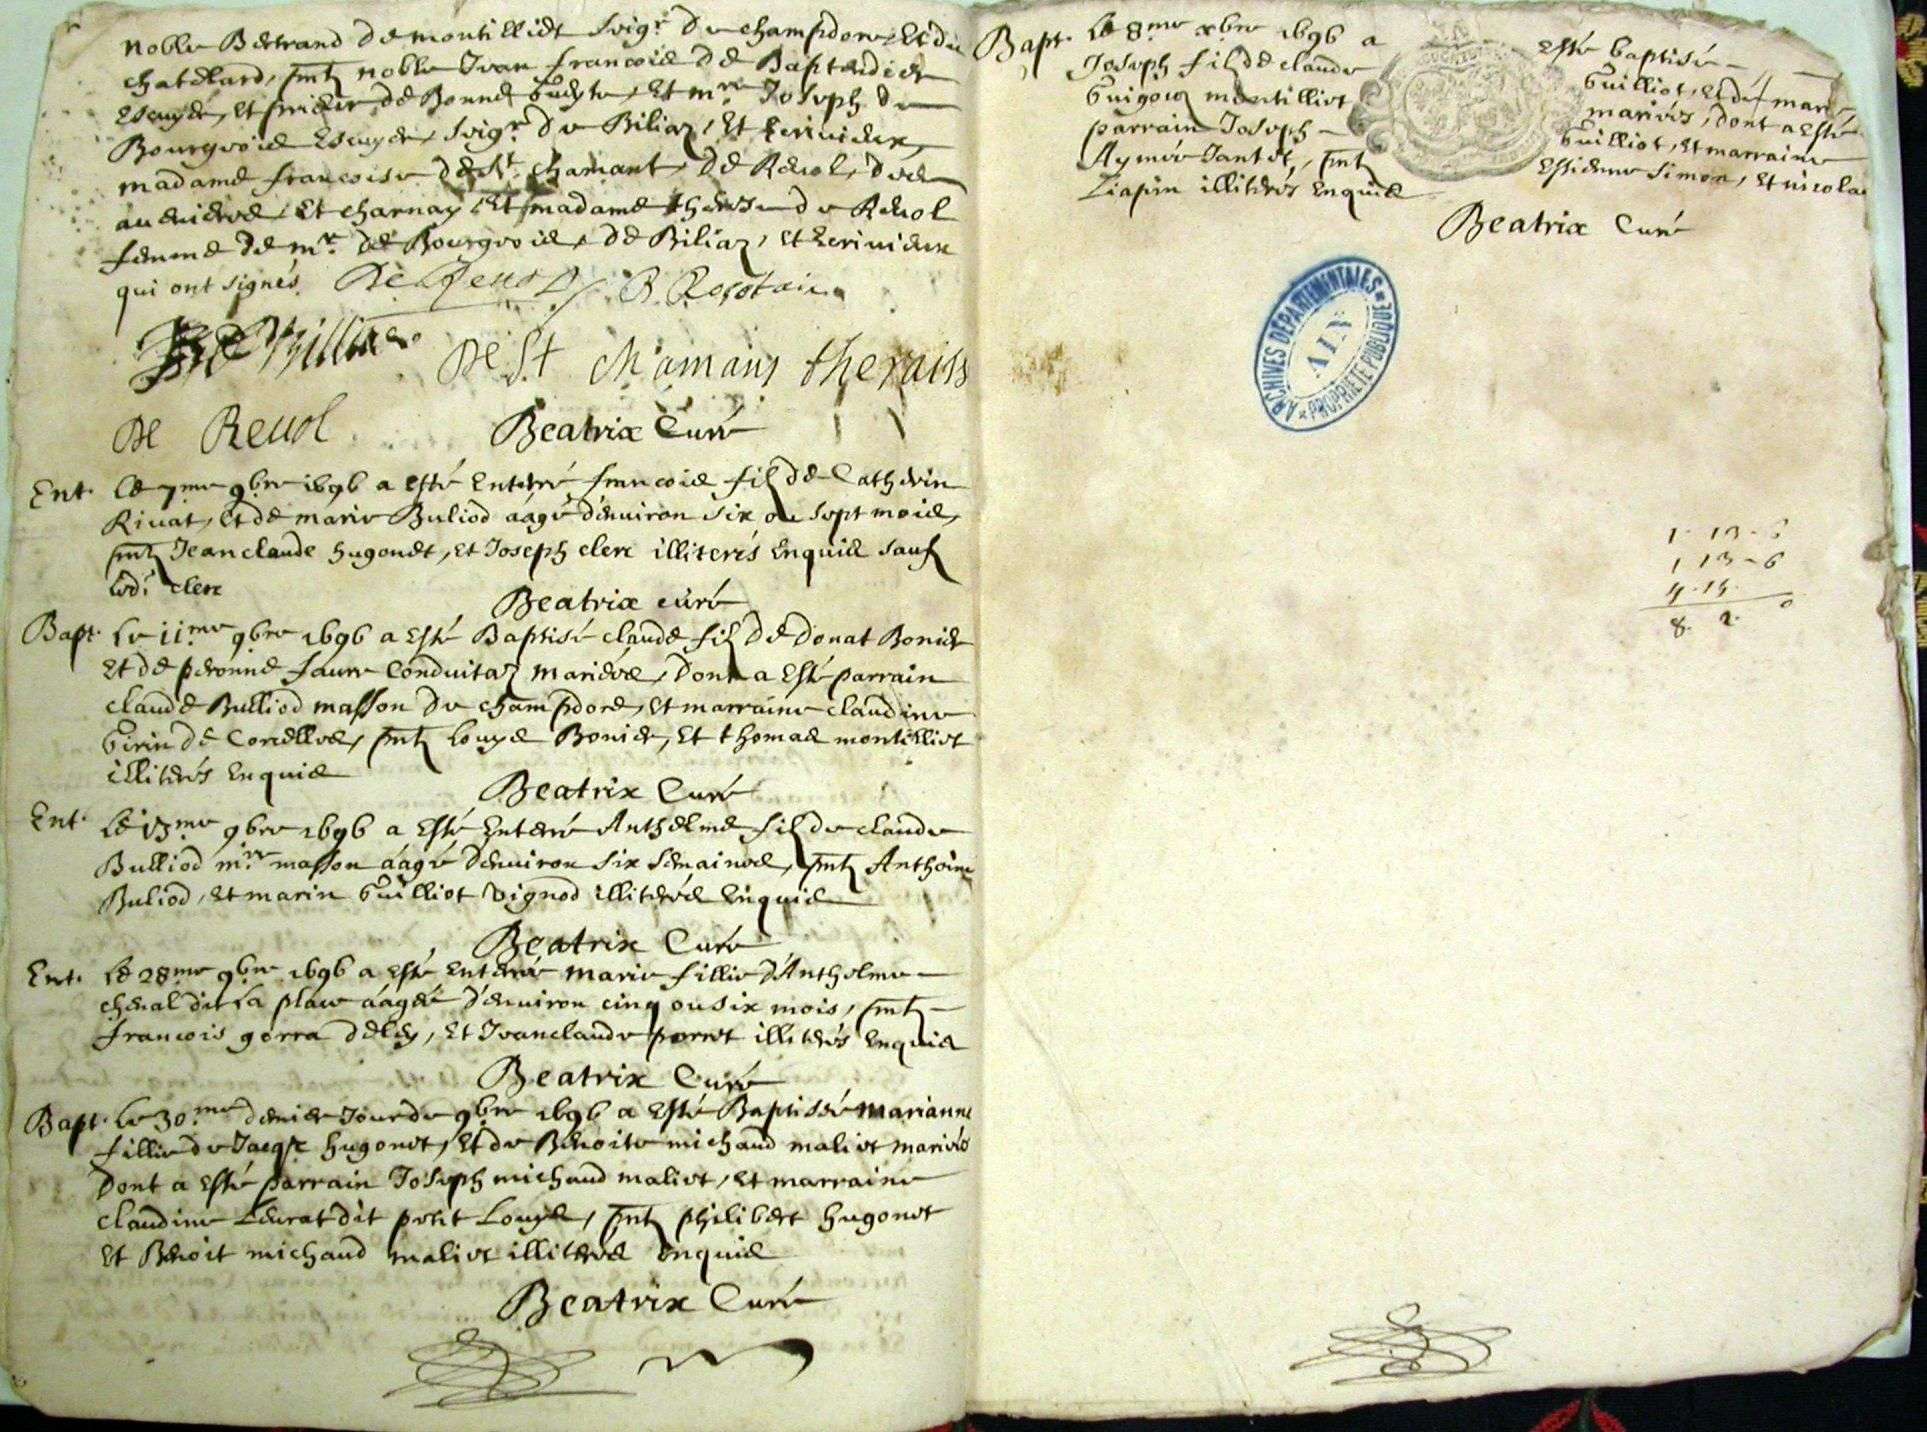 noble Bertrand de montilliet seigr de champdore, Et du
chatelard, pnt noble Jean francois de Baptendier
Escuyer, et prieur de Bonne, et mre Joseph de
Bourgeois Escuyer, seigr de Biliaz, Et Leriuieux,
madame francoise de St. chamant, de Reuol, des
auenieres, Et charnay, Et madame therese de Reuol
femme de mr. de Bourgeois, de Biliaz, et Leriuieux
qui ont signés De Reuol B Rostain
De Billiaz De St chamans theraise
De Reuol Beatrix Curé
Ent. Le 7me 9bre 1696 a esté Enterré francois fil de Catherin
Riuat, Et de marie Buliod áagé d'enuiron six ou sept mois,
pnt Jeanclaude hugonet, et Joseph clerc illiterés Enquis sauf
led. clerc
Beatrix curé
Bapt. Le 11me 9bre 1696 a Esté Baptisé claude fil de Donat Bonier
Et de peronne faure Conduitaz mariés, Dont a Esté parrain
claude Bulliod masson de champdore, et marraine claudine
Girin de Corcelles, pnt Louys Bonier, Et thomas montilliet
illiterés Enquis
Beatrix Curé
Ent. Le 13me 9bre 1696 a Esté Enterré Anthelme fil de claude
Bulliod mre masson áagé d'enuiron six semaines, pnt Anthoine
Buliod, et marin Guilliot vignod illiterés Enquis
Beatrix Curé
Ent. Le 28me 9bre 1696 a esté Enterrée marie fillie d'Anthelme
cheual dit La place áagée d'enuiron cinq ou six mois, pnt
francois gorra, Et Jeanclaude perret illiterés Enquis
Beatrix Curé
Bapt. Le 30me denier Jour de 9bre 1696 a esté Baptisée marianne
fillie de Jacqs hugonet, Et de Benoite michaud maliet mariés
Dont a esté parrain Joseph michaud maliet, et marraine
claudine Leurat dit petit Louys, pnt philibert hugonet
Et Benoit michaud maliet illiterés Enquis
Beatrix Curé
Bapt. Le 8me xbre 1696 a Esté baptisé
Joseph fil de claude Guilliot, et de marie
Guigou montilliet mariés, dont a esté
parrain Joseph Guilliot, et marraine
Aymée Jantet, pnt Estienne Simon, Et nicolas
Liapin illiterés Enquis
Beatrix Curé
ARCHIVES DÉPARTEMENTALES
AIN
PROPRIÉTÉ PUBLIQUE
1 - 13 - 6
1 13 - 6
4 - 15
8 2 0